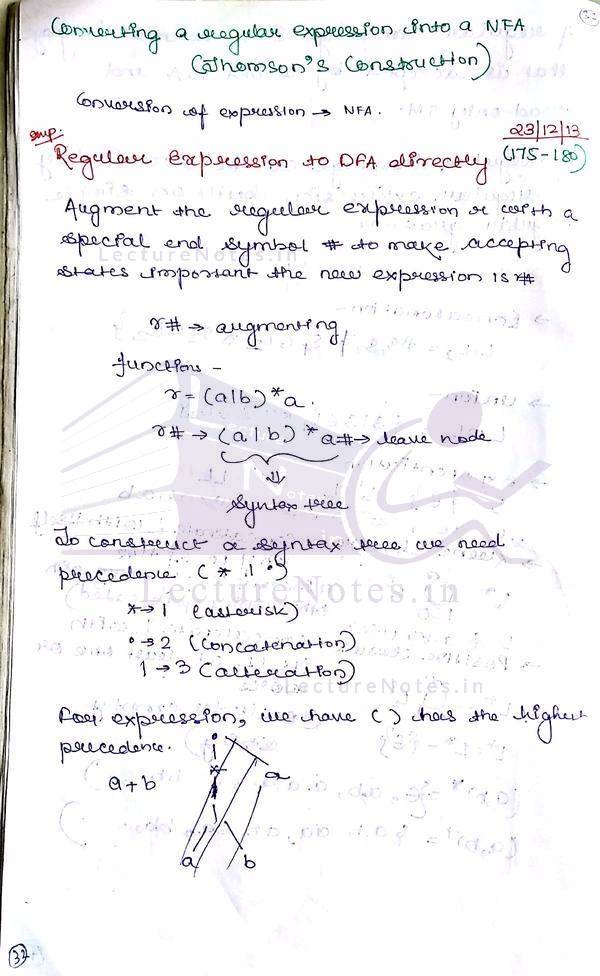 Converting a regular expression into a NFA
(Thomson's Construction)
Conversion of expression → NFA.
Imp:
23/12/13
Regular Expression to DFA directly (175-180)
Augment the regular expression r with a
special end symbol # to make accepting
states important the new expression is r#
r# → augmenting
function -
r = (a|b)*a.
r# → (a|b)*a# → leave node
⇓
Syntax tree
To construct a syntax tree we need
precedence (* | .)
LectureNotes.in
* → 1 (asterisk)
• → 2 (Concatenation)
| → 3 (alteration)
LectureNotes.in
For expression, we have ( ) has the highest
precedence.
a+b
•
*
a
|
a b
32